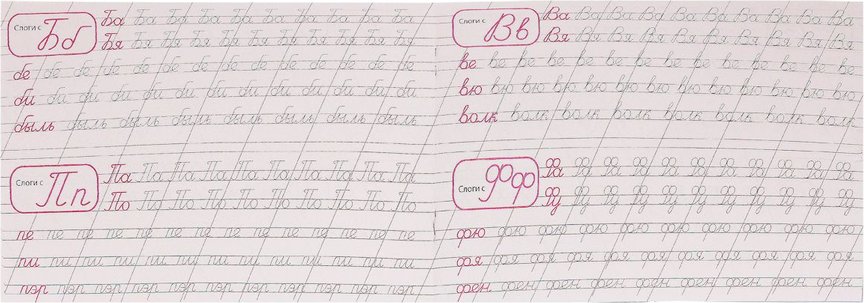 Слоги с Бб
Ба Ба Ба Ба Ба Ба Ба Ба Ба Ба Ба
Бя Бя Бя Бя Бя Бя Бя Бя Бя Бя Бя
бе бе бе бе бе бе бе бе бе бе бе бе бе бе
би би би би би би би би би би би би би
быль быль быль быль быль быль быль быль
Слоги с Пп
Па Па Па Па Па Па Па Па Па
По По По По По По По По По
пе пе пе пе пе пе пе пе пе пе пе пе пе пе
пи пи пи пи пи пи пи пи пи пи пи пи пи
пэр пэр пэр пэр пэр пэр пэр пэр пэр пэр
Слоги с Вв
Ва Ва Ва Ва Ва Ва Ва Ва Ва Ва
Вя Вя Вя Вя Вя Вя Вя Вя Вя Вя
ве ве ве ве ве ве ве ве ве ве ве ве ве ве
вю вю вю вю вю вю вю вю вю вю вю вю вю
волк волк волк волк волк волк волк волк
Слоги с Фф
Фа Фа Фа Фа Фа Фа Фа Фа Фа Фа Фа
Фу Фу Фу Фу Фу Фу Фу Фу Фу Фу Фу
фю фю фю фю фю фю фю фю фю фю
фя фя фя фя фя фя фя фя фя фя фя фя
фен фен фен фен фен фен фен фен фен